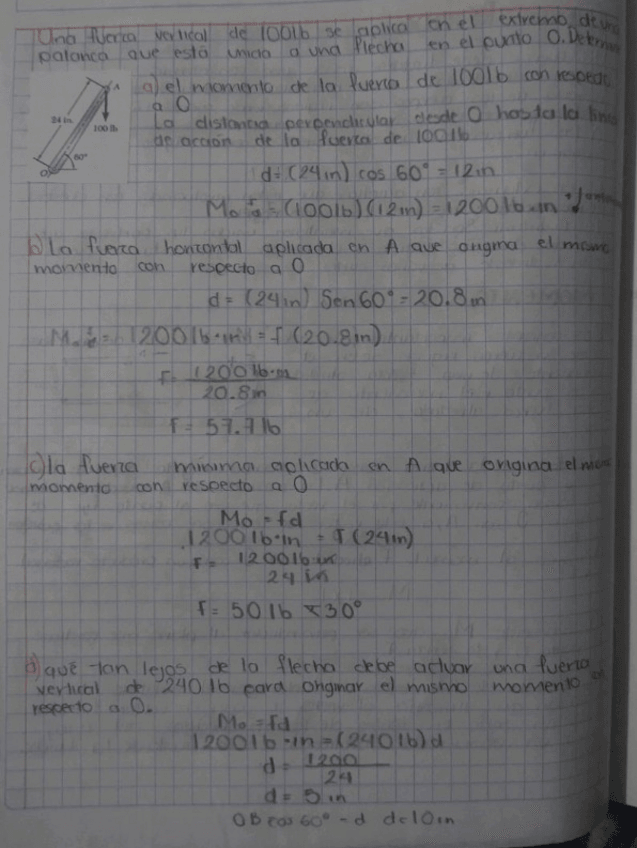 Una fuerza vertical de 100lb se aplica en el extremo de una
palanca que está unida a una flecha en el punto O. Determ
a) el momento de la fuerza de 100lb con respecto
a O
La distancia perpendicular desde O hasta la línea
de acción de la fuerza de 100lb
24 in.
A
100 lb
60°
O
d=(24in) cos 60° = 12in
Mo = (100lb)(12in) = 1200lb·in
b) La fuerza horizontal aplicada en A que origina el mismo
momento con respecto a O
d = (24in) Sen60° = 20.8in
Mo = 1200lb·in = f (20.8in)
f= 1200lb·in
20.8in
f = 57.7lb
c) la fuerza mínima aplicada en A que origina el mismo
momento con respecto a O
Mo = fd
1200lb·in = f (24in)
f = 1200lb in
24 in
f = 50lb 30°
d) qué tan lejos de la flecha debe actuar una fuerza
vertical de 240lb para originar el mismo momento
respecto a O.
Mo = fd
1200lb·in = (240lb)d
d = 1200
24
d = 5in
OB cos 60° = d d=10in